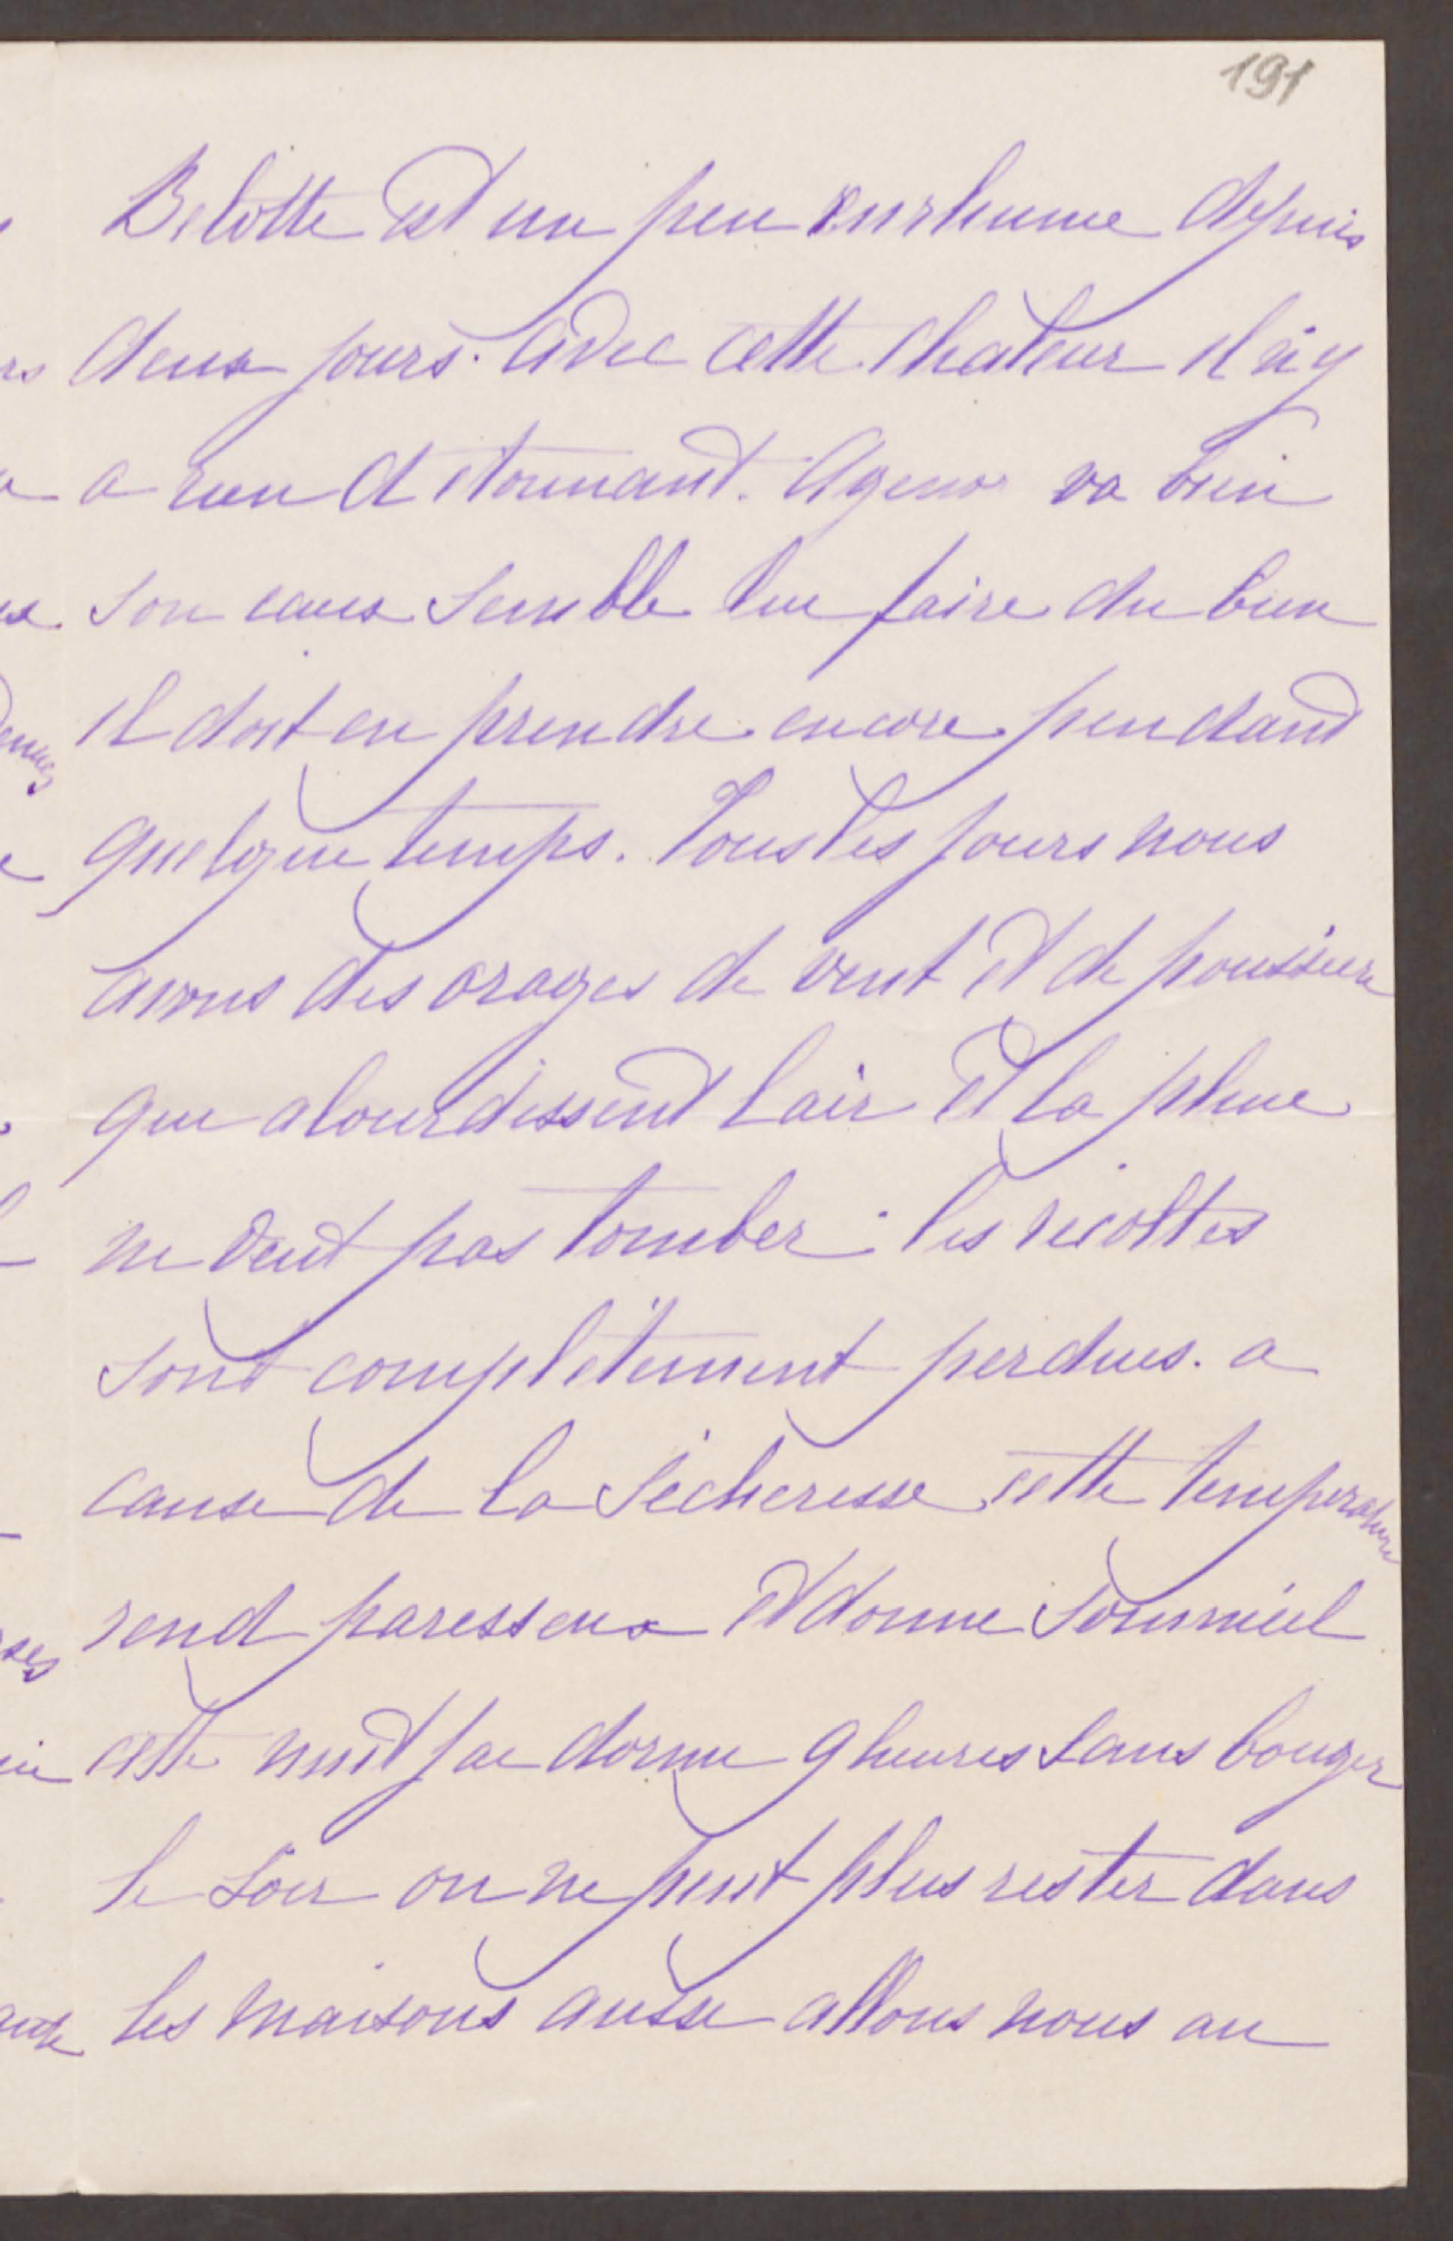 191
Belotte est un peu enrhume depuis
deux jours. avec cette chaleur il n'y
a rien d etonnant. Agenor va bien
son eaux semble lui faire du bien
il doit en prendre encore pendant
quelque temps. Tous les jours nous
avons des orages de vent et de poussiere
qui alourdissent l'air et la pluie
ne veut pas tomber : les récoltes
sont complètement perdues. a
cause de la sécheresse cette temperature
rend paresseux et donne sommeil
cette nuit j ai dormi 9 heures sans bouger
le soir on ne peut plus rester dans
les maisons aussi allons nous au